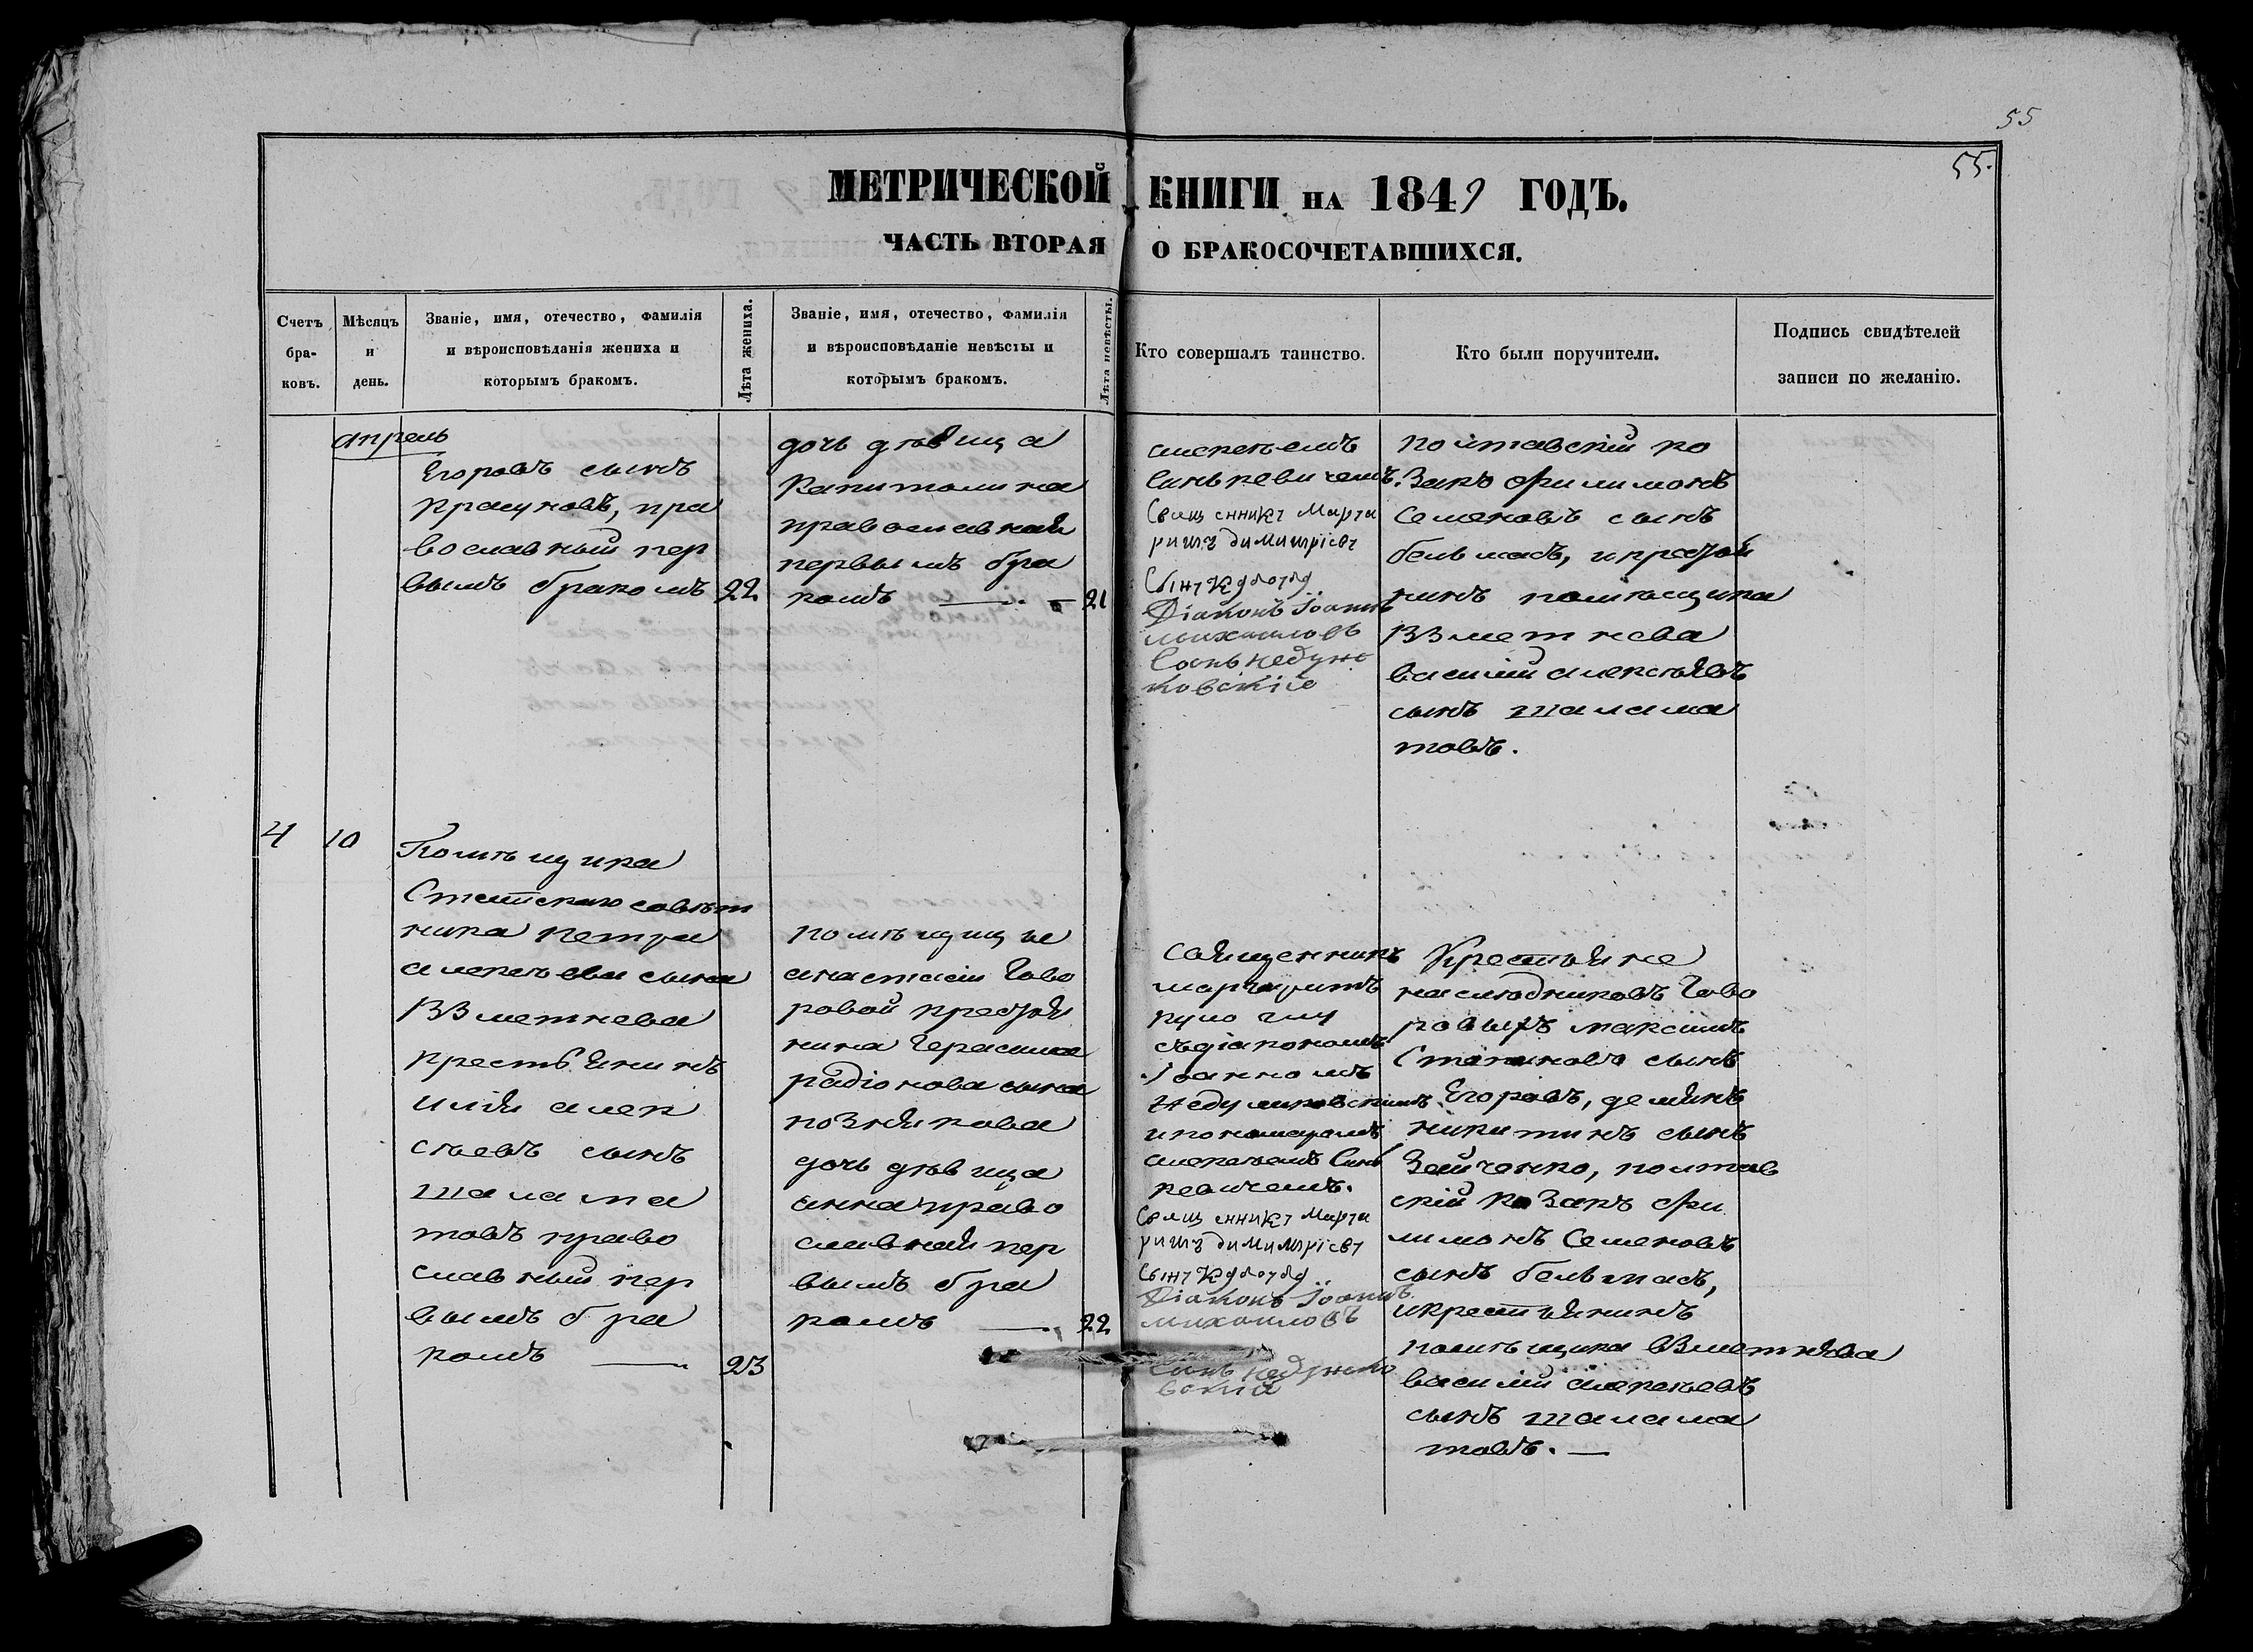 55
55.
МЕТРИЧЕСКОЙ КНИГИ НА 1849 ГОДЪ.
ЧАСТЬ ВТОРАЯ О БРАКОСОЧЕТАВШИХСЯ.
Счетъ
бра-
ковъ.
Мѣсяцъ
и
день.
Званіе, имя, отечество, фамилія
и вѣроисповѣданія жениха и
которымъ бракомъ.
Лѣта жениха.
Званіе, имя, отечество, фамилія
и вѣроисповѣданіе невѣсты и
которымъ бракомъ.
Лѣта невѣсты.
Кто совершалъ таинство.
Кто были поручители.
Подпись свидѣтелей
записи по желанію.
апрель
Егоровъ сынъ
Крацновъ, пра
вославный пер
вымъ бракомъ
22
дочь дѣвица
Капитолина
православная
первымъ бра
комъ
21
алексѣемъ
Синькевичемъ.
Священникъ Марга
ритъ Димитріевъ
Сынъ
Діаконъ Іоаннъ
михаиловъ
Сынъ недумо
ковскій
полтавскій ко
закъ Филимонъ
Семеновъ сынъ
бельмасъ, и крестья
нинъ помѣщика
Взметнева
василій алексѣевъ
сынъ талама
товъ.
4
10
Помѣщика
Статскаго совѣт
ника петра
алексѣева сына
Взметнева
крестьянинъ
илія алек
сѣевъ сынъ
талама
товъ право
славный пер
вымъ бра
комъ
23
помѣщицы
анастасіи Гово
ровой крестья
нина Герасима
радіонова сына
познякова
дочь дѣвица
анна право
славная пер
вымъ бра
комъ
22
Священникъ
маргаритъ
съ діакономъ
Іоанномъ
Недумковскимъ
и пономаремъ
алексѣемъ Синь
кевичемъ.
Священникъ Марга
ритъ Димитріевъ
Сынъ
Діаконъ Іоаннъ
михаиловъ
Сынъ недумко
вскій
Крестьяне
наслѣдниковъ Гово
ровыхъ максимъ
Егоровъ, демянъ
никитинъ сынъ
Зайченко, полтав
скій козакъ Фи
лимонъ Семеновъ
сынъ бельмасъ,
и крестьянинъ
помѣщика Взметнѣва
василій алексѣевъ
сынъ талама
товъ.